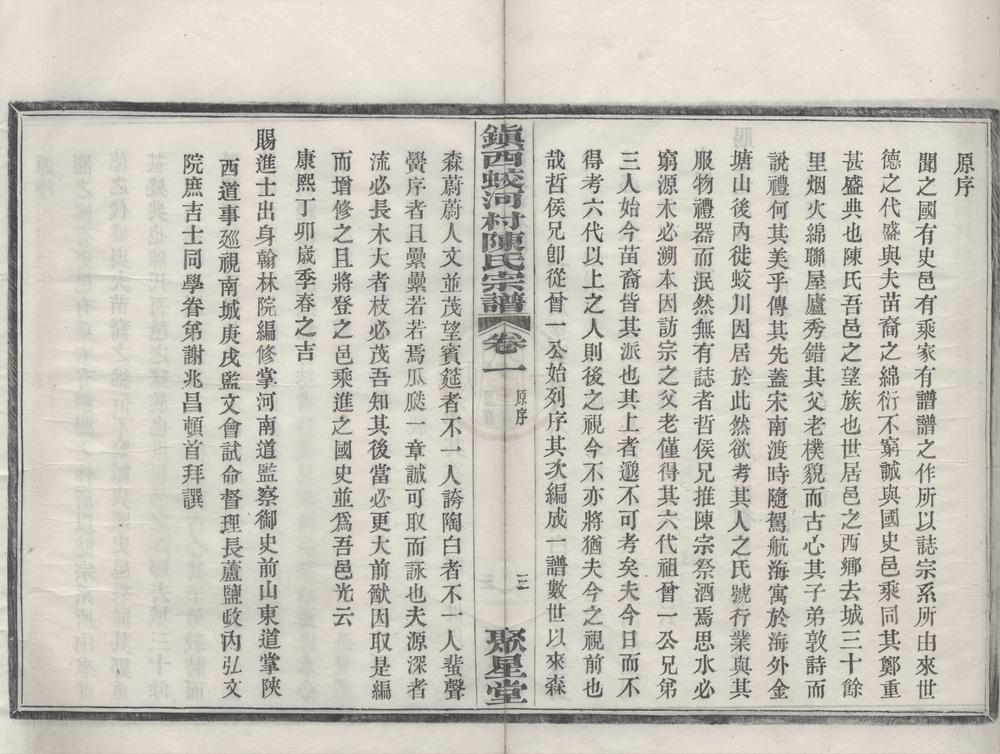 原序
聞之國有史邑有乘家有譜譜之作所以誌宗系所由來世
德之代盛與夫苗裔之綿衍不窮誠與國史邑乘同其鄭重
甚盛典也陳氏吾邑之望族也世居邑之西鄉去城三十餘
里烟火綿聯屋廬秀錯其父老樸貌而古心其子弟敦詩而
說禮何其美乎傳其先蓋宋南渡時隨駕航海寓於海外金
塘山後內徙蛟川因居於此然欲考其人之氏號行業與其
服物禮器而泯然無有誌者哲侯兄推陳宗祭酒焉思水必
窮源木必溯本因訪宗之父老僅得其六代祖曾一公兄弟
三人始今苗裔皆其派也其上者邈不可考矣夫今日而不
得考六代以上之人則後之視今不亦將猶夫今之視前也
哉哲侯兄卽從曾一公始列序其次編成一譜數世以來森
鎭西蛟河村陳氏宗譜 卷一 原序 三 聚星堂
森蔚蔚人文並茂望賓筵者不一人誇陶白者不一人蜚聲
黌序者且纍纍若若焉瓜瓞一章誠可取而詠也夫源深者
流必長木大者枝必茂吾知其後當必更大前猷因取是編
而增修之且將登之邑乘進之國史並爲吾邑光云
康熙丁卯歲季春之吉
賜進士出身翰林院編修掌河南道監察御史前山東道掌陝
西道事廵視南城庚戌監文會試命督理長蘆鹽政內弘文
院庶吉士同學眷弟謝兆昌頓首拜譔